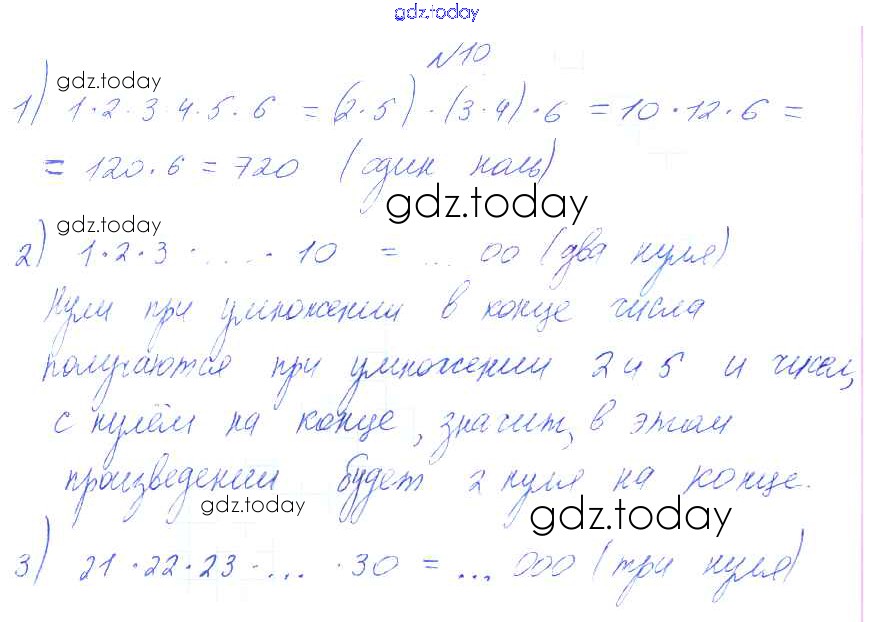 gdz.today
№10
gdz.today
1) 1·2·3·4·5·6 = (2·5)·(3·4)·6 = 10·12·6 =
= 120·6 = 720 (один ноль)
gdz.today
gdz.today
2) 1·2·3·....·10 = ... 00 (два нуля)
Нули при умножении в конце числа
получаются при умножении 2 и 5 и чисел,
с нулём на конце, значит, в этом
произведении будет 2 нуля на конце.
gdz.today
gdz.today
3) 21·22·23·...·30 = ... 000 (три нуля)